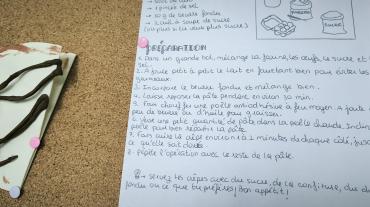 → 1 pincée de sel
→ 50 g de beurre fondu
→ 2 cuil à soupe de sucre
(ou plus si tu veux plus sucré)
SUCRE
PRÉPARATION
1. Dans un grand bol, mélange la farine, les œufs, le sucre et
sel.
2. Ajoute petit à petit le lait en fouettant bien pour éviter les
grumeaux.
3. Incorpore le beurre fondu et mélange bien.
4. Laisse reposer la pâte pendant environ 30 min.
5. Fais chauffer une poêle antiadhésive à feu moyen. Ajoute
peu de beurre ou d'huile pour graisser.
6. Verse une petite quantité de pâte dans la poêle chaude. Incline
poêle pour bien répartir la pâte.
7. Fais cuire la crêpe environ 1 à 2 minutes de chaque côté, jusqu
ce qu'elle soit dorée
8. Répète l'opération avec le reste de la pâte.
servez tes crêpes avec du sucre, de la confiture, du
fondu ou ce que tu préfères! Bon appétit!